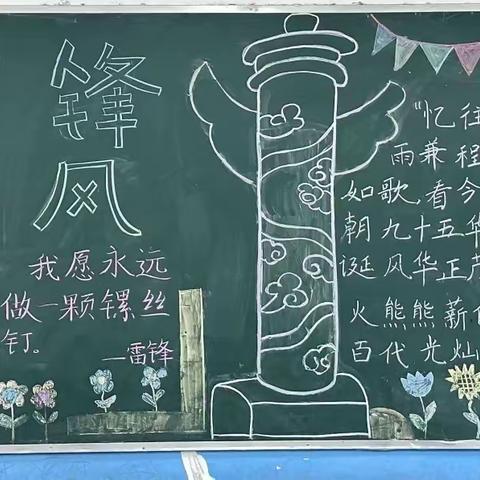 锋
风
我愿永远
做一颗镙丝
钉。
—雷锋
"忆往
雨兼程
如歌,看今
朝九十五华
诞风华正
火熊熊薪
百代光灿